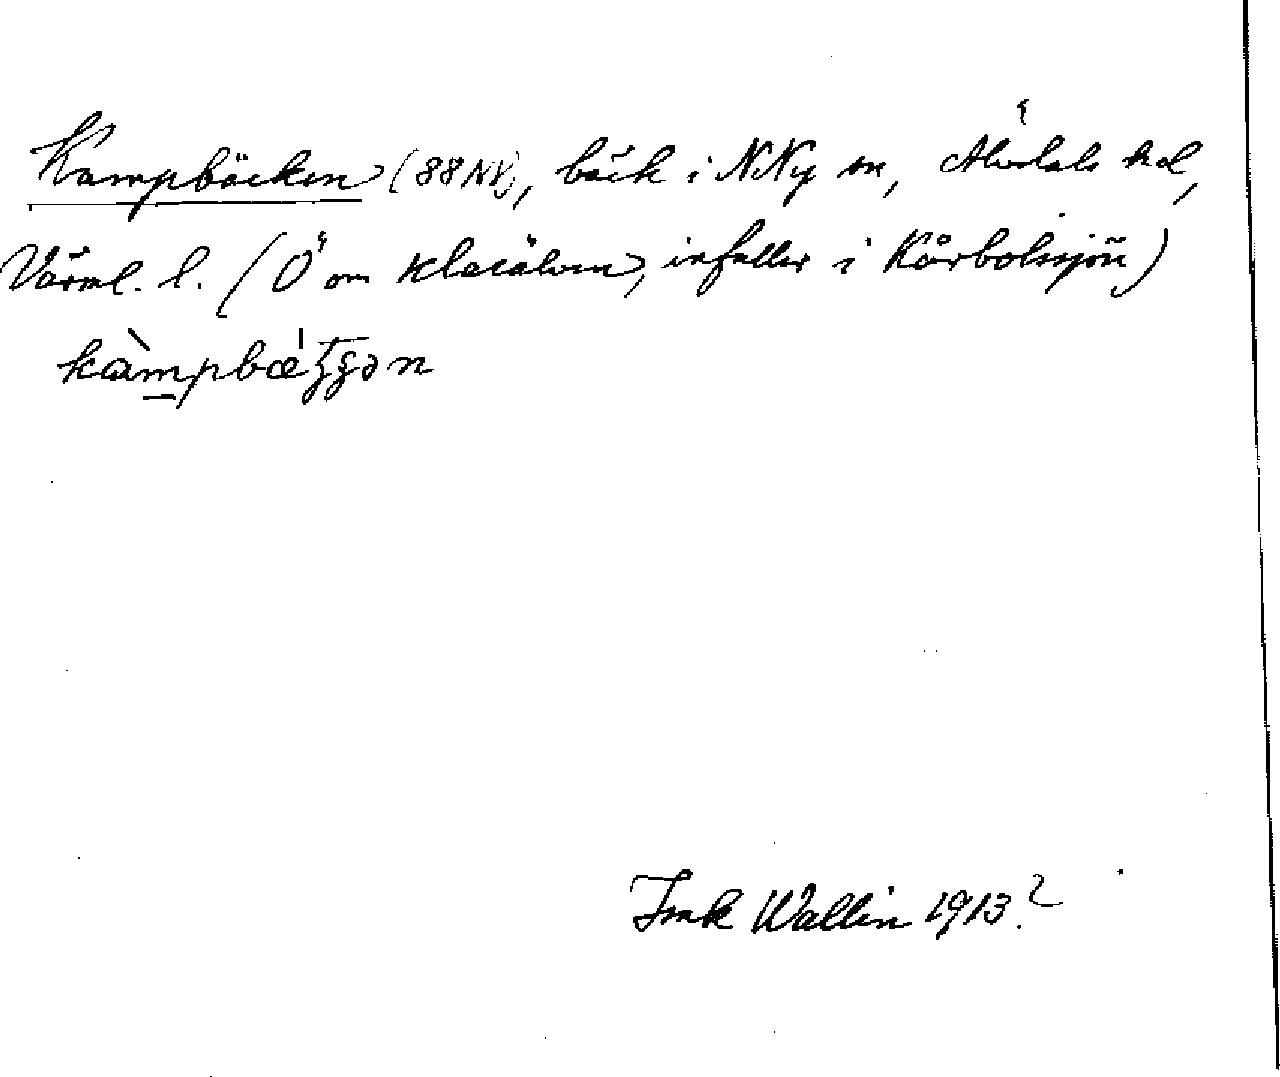 Kampbäcken (88 NV), bäck i N Ny sn, Älvdals hd,
Värml. l. (Ö om Klarälven, infaller i Kårbolssjön)
kàmpbæ̀ʒʒən
Wallin 1913.